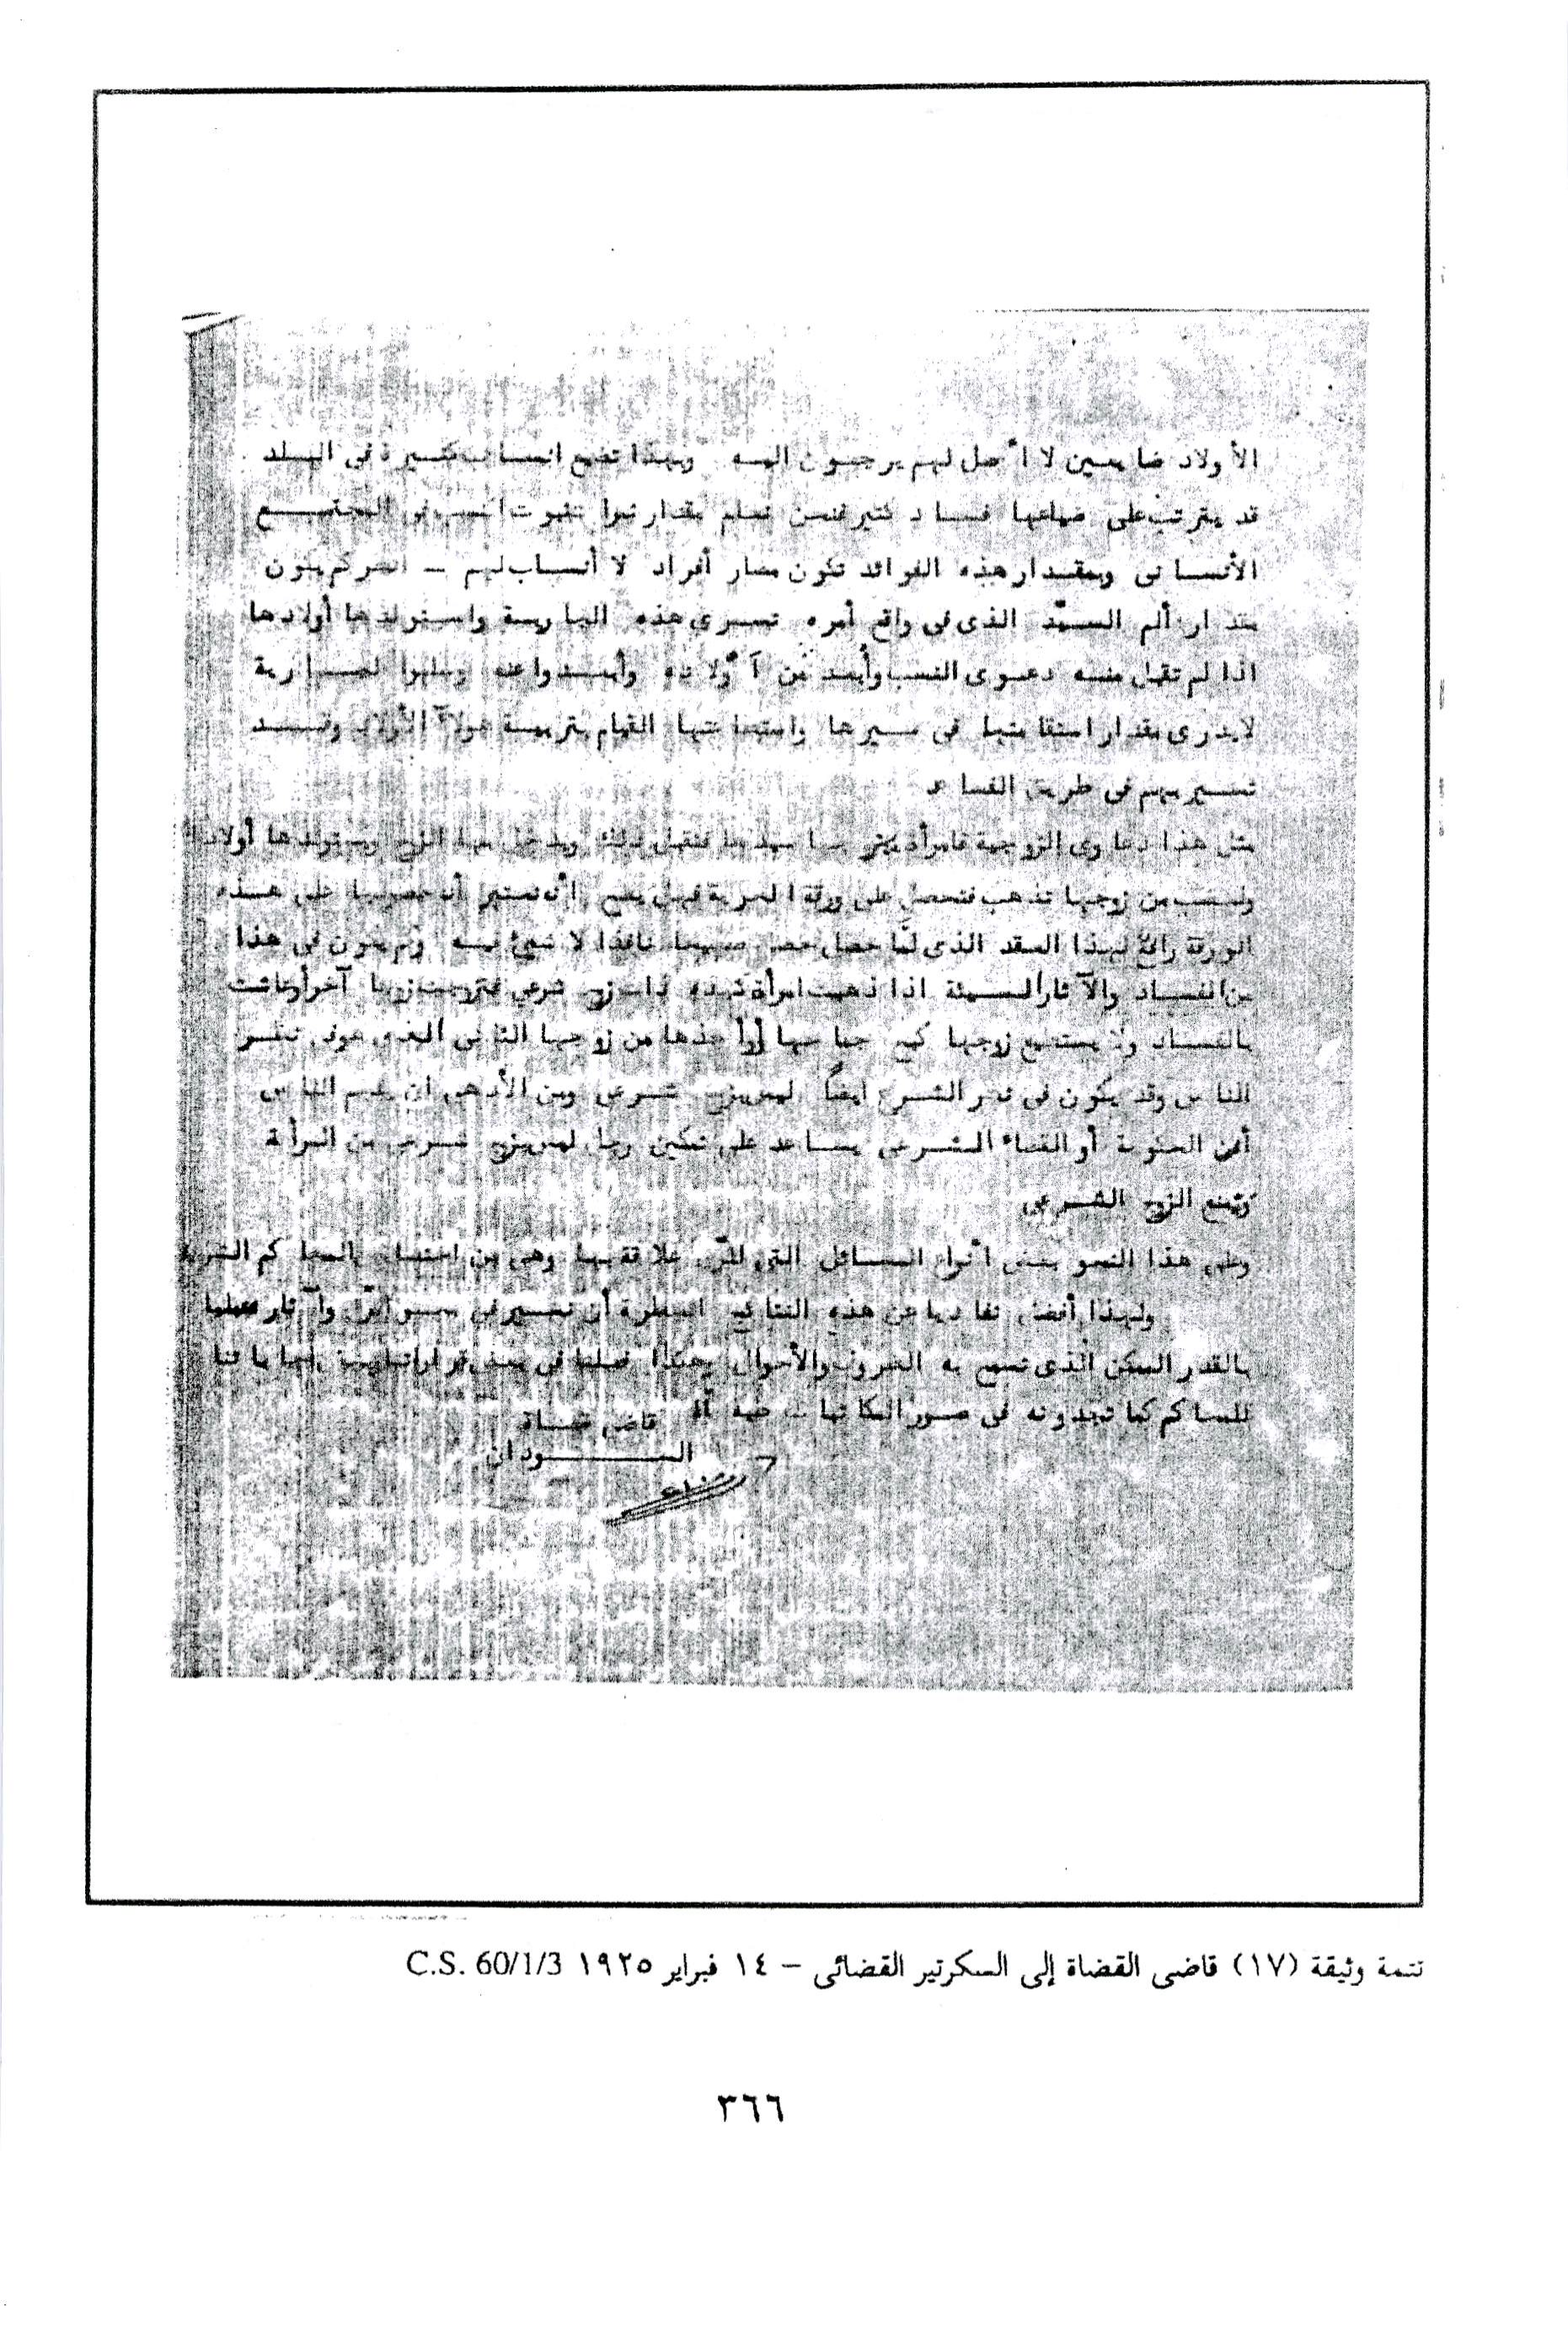 الأولاد ضايعين لا أصل لهم يرجعون اليه وبهذا تضيع انساب كثيرة فى البلد
قد يترتب على ضياعها فساد كثير فنحن نعلم مقدار ثبوت النسب فى المجتمع
الأنسانى وبمقدار هذه الفوائد تكون مضار أفراد لا أنساب لهم – انظر كم يكون
مقدار ألم السيّد الذى فى واقع أمره تسرى هذه الجارية واستولدها أولادها
اذا لم تقبل منه دعوى النسب وأبعد من أولاده وأبعدوا عنه وسلموا لجارية
لا يدرى مقدار استقامتها فى سيرها واستطاعتها القيام بتربية هولآ الأولاد وقد
تسير بهم فى طريق الفساد
مثل هذا دعاوى الزوجية فامرأة يتزوجها سيدها فتقبل ذلك ويدخل بها الزوج ويستولدها أولاد
وتغضب من زوجها تذهب فتحصل على ورقة الحرية فهل يصح أن نعتبر أن حصولها على هذه
الورقة رافع لهذا العقد الذى حصل صحيحا نافذا لا شىء فيه وكم يكون فى هذا
من الفساد والآثار السيئة اذا ذهبت امرأة كهذه ذات زوج شرعى فتزوجت زوجا آخر أو عاشت
بالفساد ولا يستطيع زوجها كبح جماحها أو أخذها من زوجها الثانى الذى هو فى نظر
الناس وقد يكون فى نظر الشرع ايضاً ليس بزوج شرعى ومن الأدهى ان يفهم الناس
أن الحكومة أو القضاء الشرعى يساعد على تمكين رجل ليس بزوج شرعى من امرأة
ويمنع الزوج الشرعى
وعلى هذا النحو بعض أنواع المسائل التى للرق علاقة بها وهى من اختصاص المحاكم الشرعية
ولهذا أفضل تفاديا من هذه النتائج الخطرة أن نسير فى أمور الرق وآثاره عمليا
بالقدر الممكن الذى تسمح به الظروف والأحوال وهكذا فعلنا فى بعض قرارات
للمحاكم كما تجدونه فى صور المكاتبات طيه
قاضى قضاة
السودان
تتمة وثيقة (١٧) قاضى القضاة إلى السكرتير القضائى – ١٤ فبراير ١٩٢٥ C.S. 60/1/3
٣٦٦